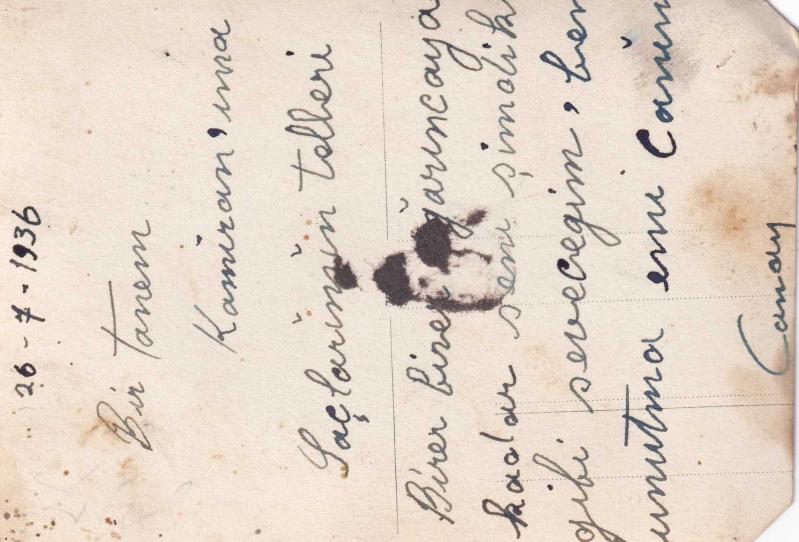 26-7-1936
Bir tanem
Kamiran'ıma
Saçlarımın telleri
Birer birer ğarıncaya
kadar seni şimdik
gibi sevecegim, ben
unutma emi Canım
Canay